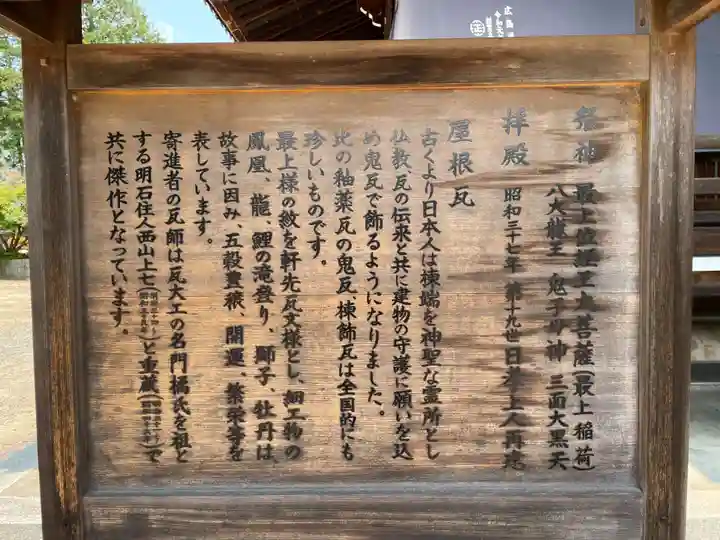 祭神 最上位経王大菩薩(最上稲荷)
八大龍王 鬼子母神 三面大黒天
拝殿 昭和三十七年 第十九世 日孝上人再建
屋根瓦
古くより日本人は棟端を神聖な霊所とし
仏教、瓦の伝来と共に建物の守護に願いを込
め鬼瓦で飾るようになりました。
此の釉薬瓦の鬼瓦、棟飾瓦は全国的にも
珍しいものです。
最上様の紋を軒先瓦文様とし、細工物の
鳳凰、龍、鯉の滝登り、獅子、牡丹は、
故事に因み、五穀豊穣、開運、繁栄等を
表しています。
寄進者の瓦師は瓦大工の名門橘氏を祖と
する明石住人西山上七と重蔵で
共に傑作となっています。